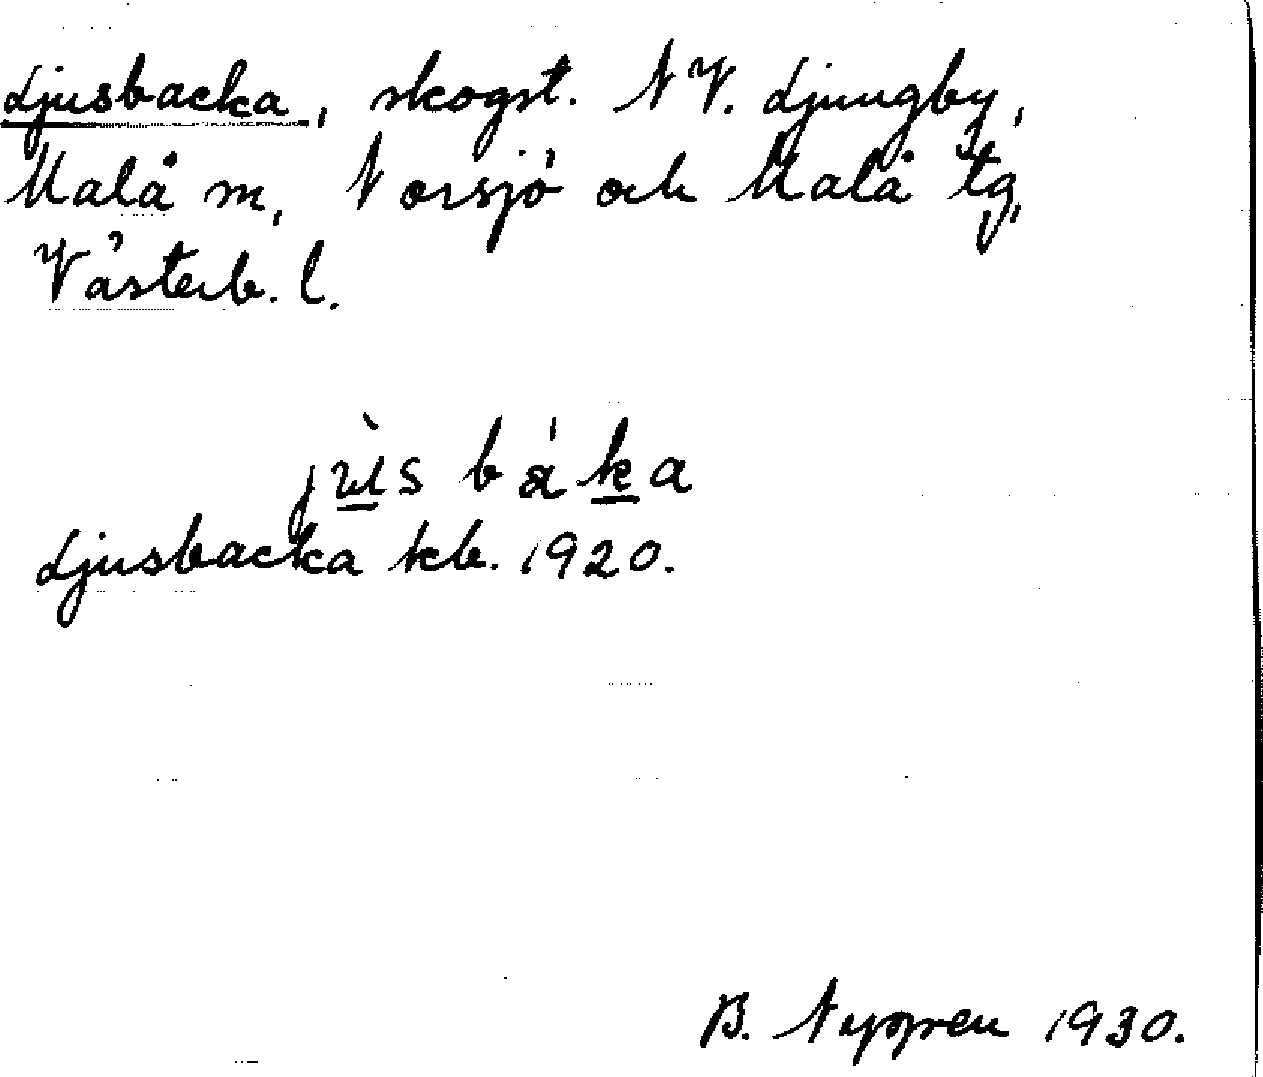 Ljusbacka, skogst. NV. Ljungby,
Malå sn, Norsjö och Malå tg,
Västerb. l.
jùs báka
Ljusbacka kb. 1920.
B. 1930.